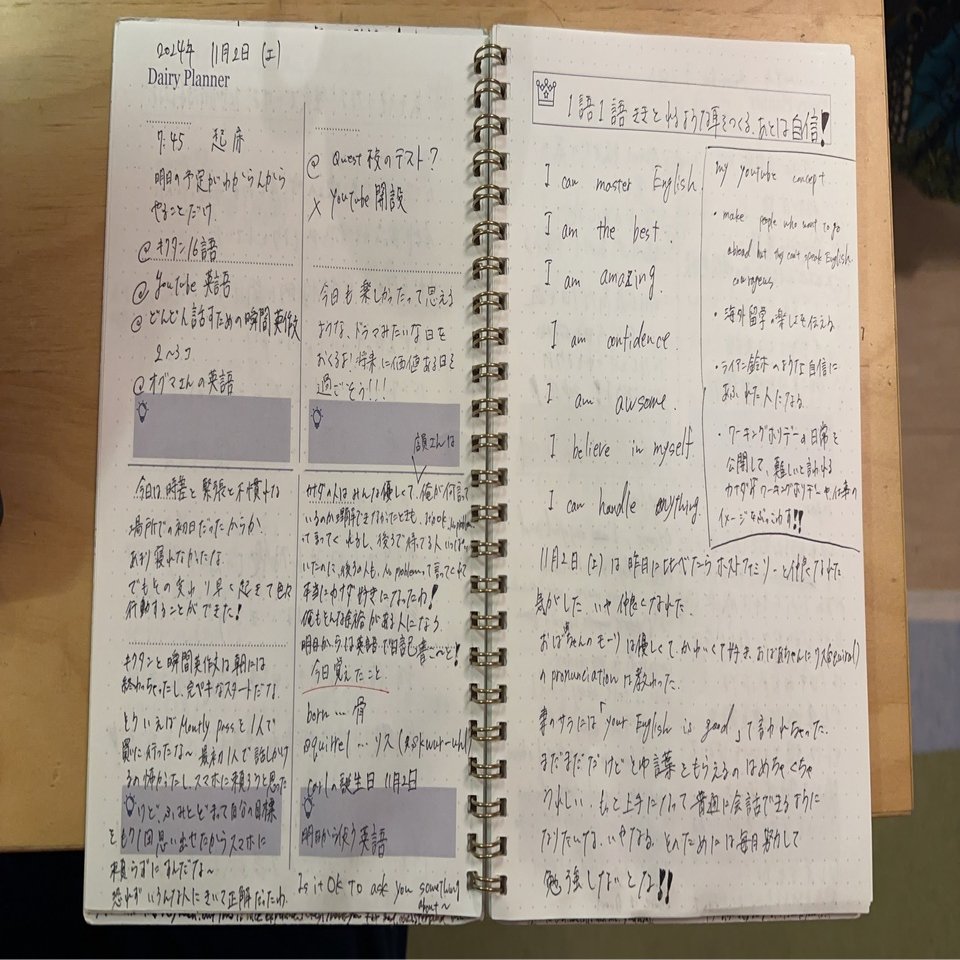 2024年 11月2日 (土)
Dairy Planner
7:45 起床
明日の予定がわからんから
やることだけ
@ キクタン16語
@ Youtube 英語
@ どんどん話すための瞬間英作文
2~3コ
@ オグマさんの英語
今日は、時差と緊張と不慣れな
場所での初日だったからか
あまり寝れなかったな
でもその変わり早く起きて色々
行動することができた!
キクタンと瞬間英作文は朝には
終わっちゃったし、完ペキなスタートだな。
とりいえばMontly passを1人で
買いに行ったな~ 最初は1人で話しかけ
るの怖かったし、スマホに頼ろうと思った
けど、ふみとどまって自分の目標
をもう1回思い出せたからスマホに
頼らずにすんだな~
恐れず いろんな人にきいて正解だったわ
@ Quest 校のテスト?
× Youtube 開設
今日も楽しかったって思える
ような、ドラマみたいな日を
おくるよ!将来に価値ある日を
過ごそう!!!
店員さんは
カナダの人はみんな優しくて、俺が何言って
いるのか理解できなかったときも、
って言ってくれるし、後ろで待ってる人いっぱい
いたのに、後ろの人も、no problemって言ってくれて
本当にカナダ好きになったわ!
俺もそんな余裕がある人になろう
明日からは英語で日記書こ~ぜ!
今日覚えたこと
born … 骨
squirrel … リス (skwur-uhl)
Carlの誕生日 11月2日
明日から使う英語
Is it OK to ask you something
about~
1語1語ききとれるような耳をつくる、あとは自信!
I can master English.
I am the best.
I am amazing.
I am confidence.
I am awsome.
I believe in myself.
I can handle anything.
my youtube concept
・make people who want to go
abroad but they can't speak English
courageus
・海外留学の楽しさを伝える
・ライアン鈴木のような自信に
あふれた人になる
・ワーキングホリデーの日常を
公開して、難しいと言われる
カナダのワーキングホリデーや仕事の
イメージをぶっこわす!!
11月2日(土)は昨日に比べたらホストファミリーと仲良くなれた
気がした。いや仲良くなれた。
おばあちゃんのモーリは優しくて、かわいくて好き、おばあちゃんにリス(squirrel)
の pronunciation は教わった。
妻のサラには「your English is good」って言われちゃった。
まだまだだけどその言葉をもらえるのはめちゃくちゃ
うれしい。もっと上手になって普通に会話できるように
なりたいな、いやなる。そのためには毎日努力して
勉強しないとな!!